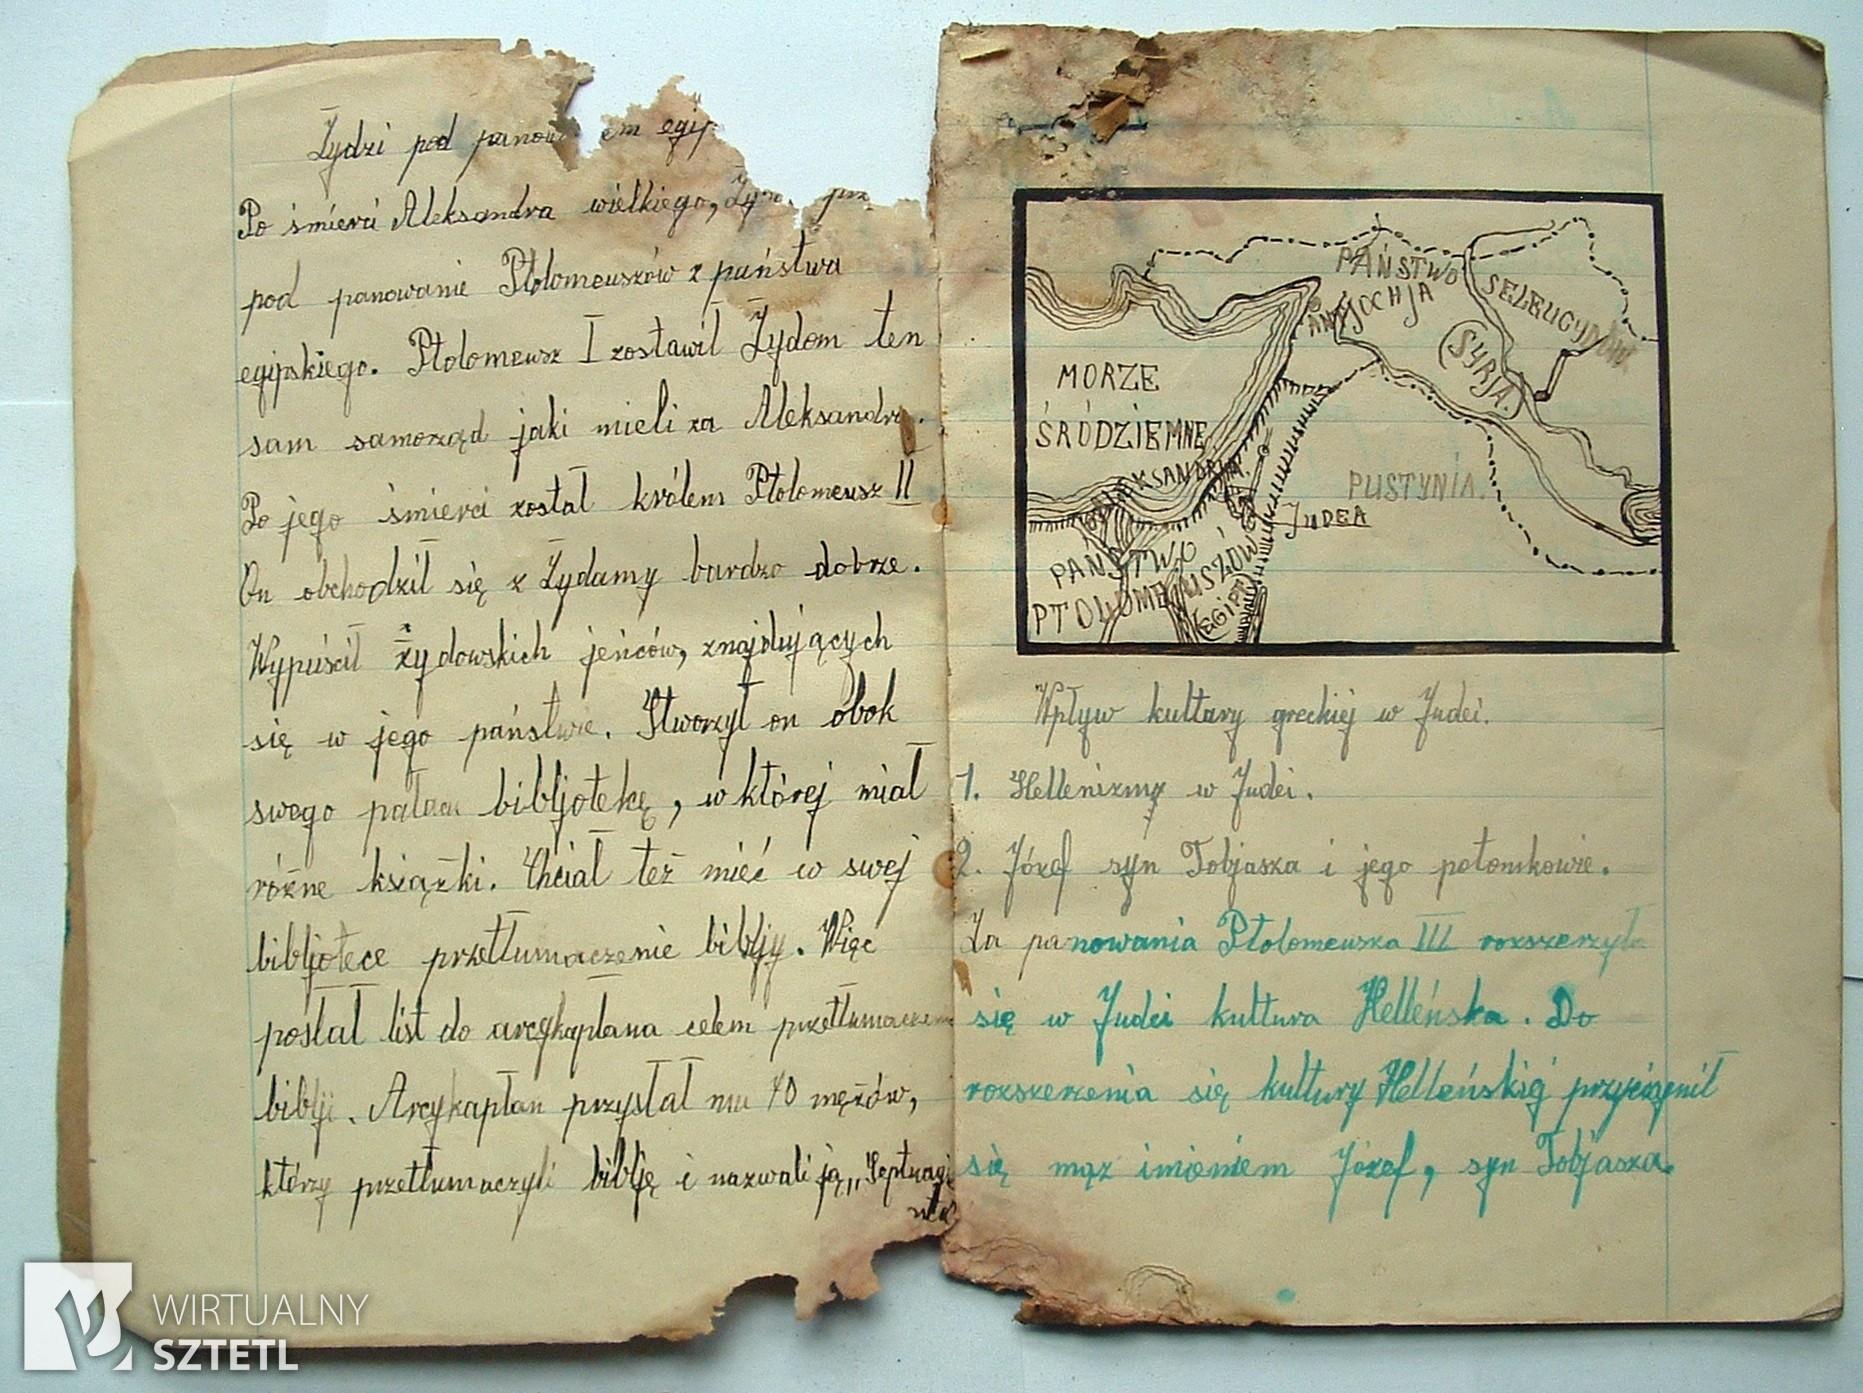 Żydzi pod panow em egip
Po śmierci Aleksandra wielkiego, Żyd
pod panowanie Ptolomeuszów z państwa
egipskiego. Ptolomeusz I zostawił Żydom ten
sam samorząd jaki mieli za Aleksandra.
Po jego śmierci został królem Ptolomeusz II
On obchodził się z Żydamy bardzo dobrze.
Wypuścił żydowskich jeńców, znajdujących
się w jego państwie. Stworzył on obok
swego pałacu bibljotekę, w której miał
różne książki. Chciał też mieć w swej
bibljotece przetłumaczenie biblji. Więc
posłał list do arcykapłana celem przetłumaczenia
biblji. Arcykapłan przysłał mu 70 mężów,
którzy przetłumaczyli biblję i nazwali ją „Septuagi
nta
PAŃSTWO
SELEUCYDÓW
ANTJOCHJA
(SYRJA)
MORZE
ŚRÓDZIEMNE
ALEKSANDRJA.
PUSTYNIA.
JUDEA
PAŃSTWO
PTOLOMEUSZÓW
(EGIPT)
Wpływ kultury greckiej w Judei.
1. Hellenizm w Judei.
2. Józef syn Tobjasza i jego potomkowie.
Za panowania Ptolomeusza III rozszerzyła
się w Judei kultura Helleńska. Do
rozszerzenia się kultury Helleńskiej przyciągnił
się mąż imieniem Józef, syn Tobjasza.
WIRTUALNY
SZTETL